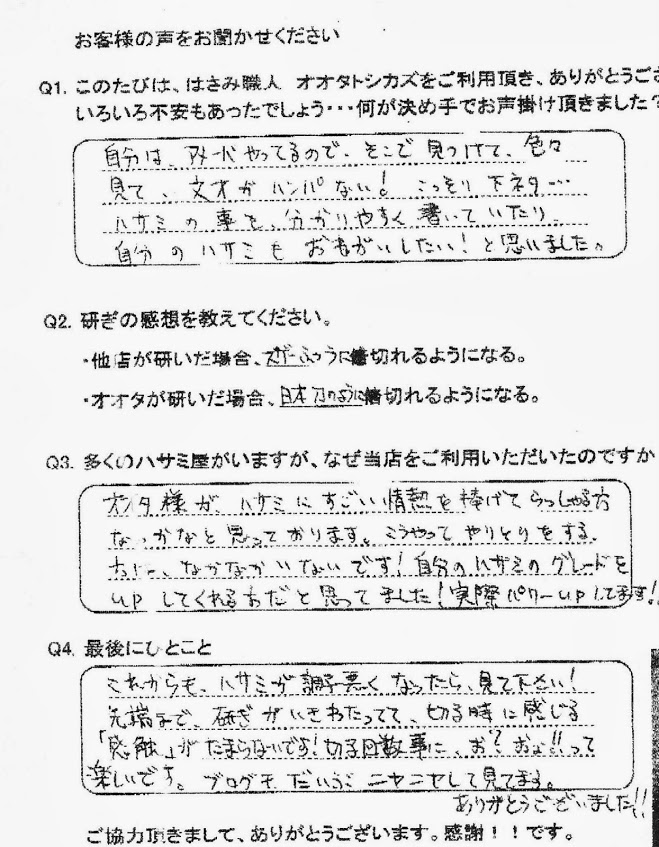 お客様の声をお聞かせください
Q1. このたびは、はさみ職人 オオタトシカズをご利用頂き、ありがとうござ
いろいろ不安もあったでしょう・・・何が決め手でお声掛け頂きました?
自分は、アメーバやってるので、そこで見つけて、色々
見て、文才がハンパない! こっそり下ネタ…
ハサミの事を、分かりやすく書いていたり
自分のハサミもおねがいしたい!と思いました。
Q2. 研ぎの感想を教えてください。
・他店が研いだ場合、ふつうに切れるようになる。
・オオタが研いだ場合、日本刀のように切れるようになる。
Q3. 多くのハサミ屋がいますが、なぜ当店をご利用いただいたのですか
オオタ様が、ハサミにすごい情熱を捧げてらっしゃる方
なっかなと思っております。こうやってやりとりをする
なかなかいないです!自分のハサミのグレードを
upしてくれる方だと思ってました!実際パワーupしてます!!
Q4. 最後にひとこと
これからも、ハサミが調子悪くなったら、見て下さい!
先端まで、研ぎがいきわたってて、切る時に感じる
「感触」がたまらないです!切る回数事に、お?およ!!って
楽しいです。ブログもだいぶニヤニヤして見てます。
ありがとうございました!!
ご協力頂きまして、ありがとうございます。感謝!!です。